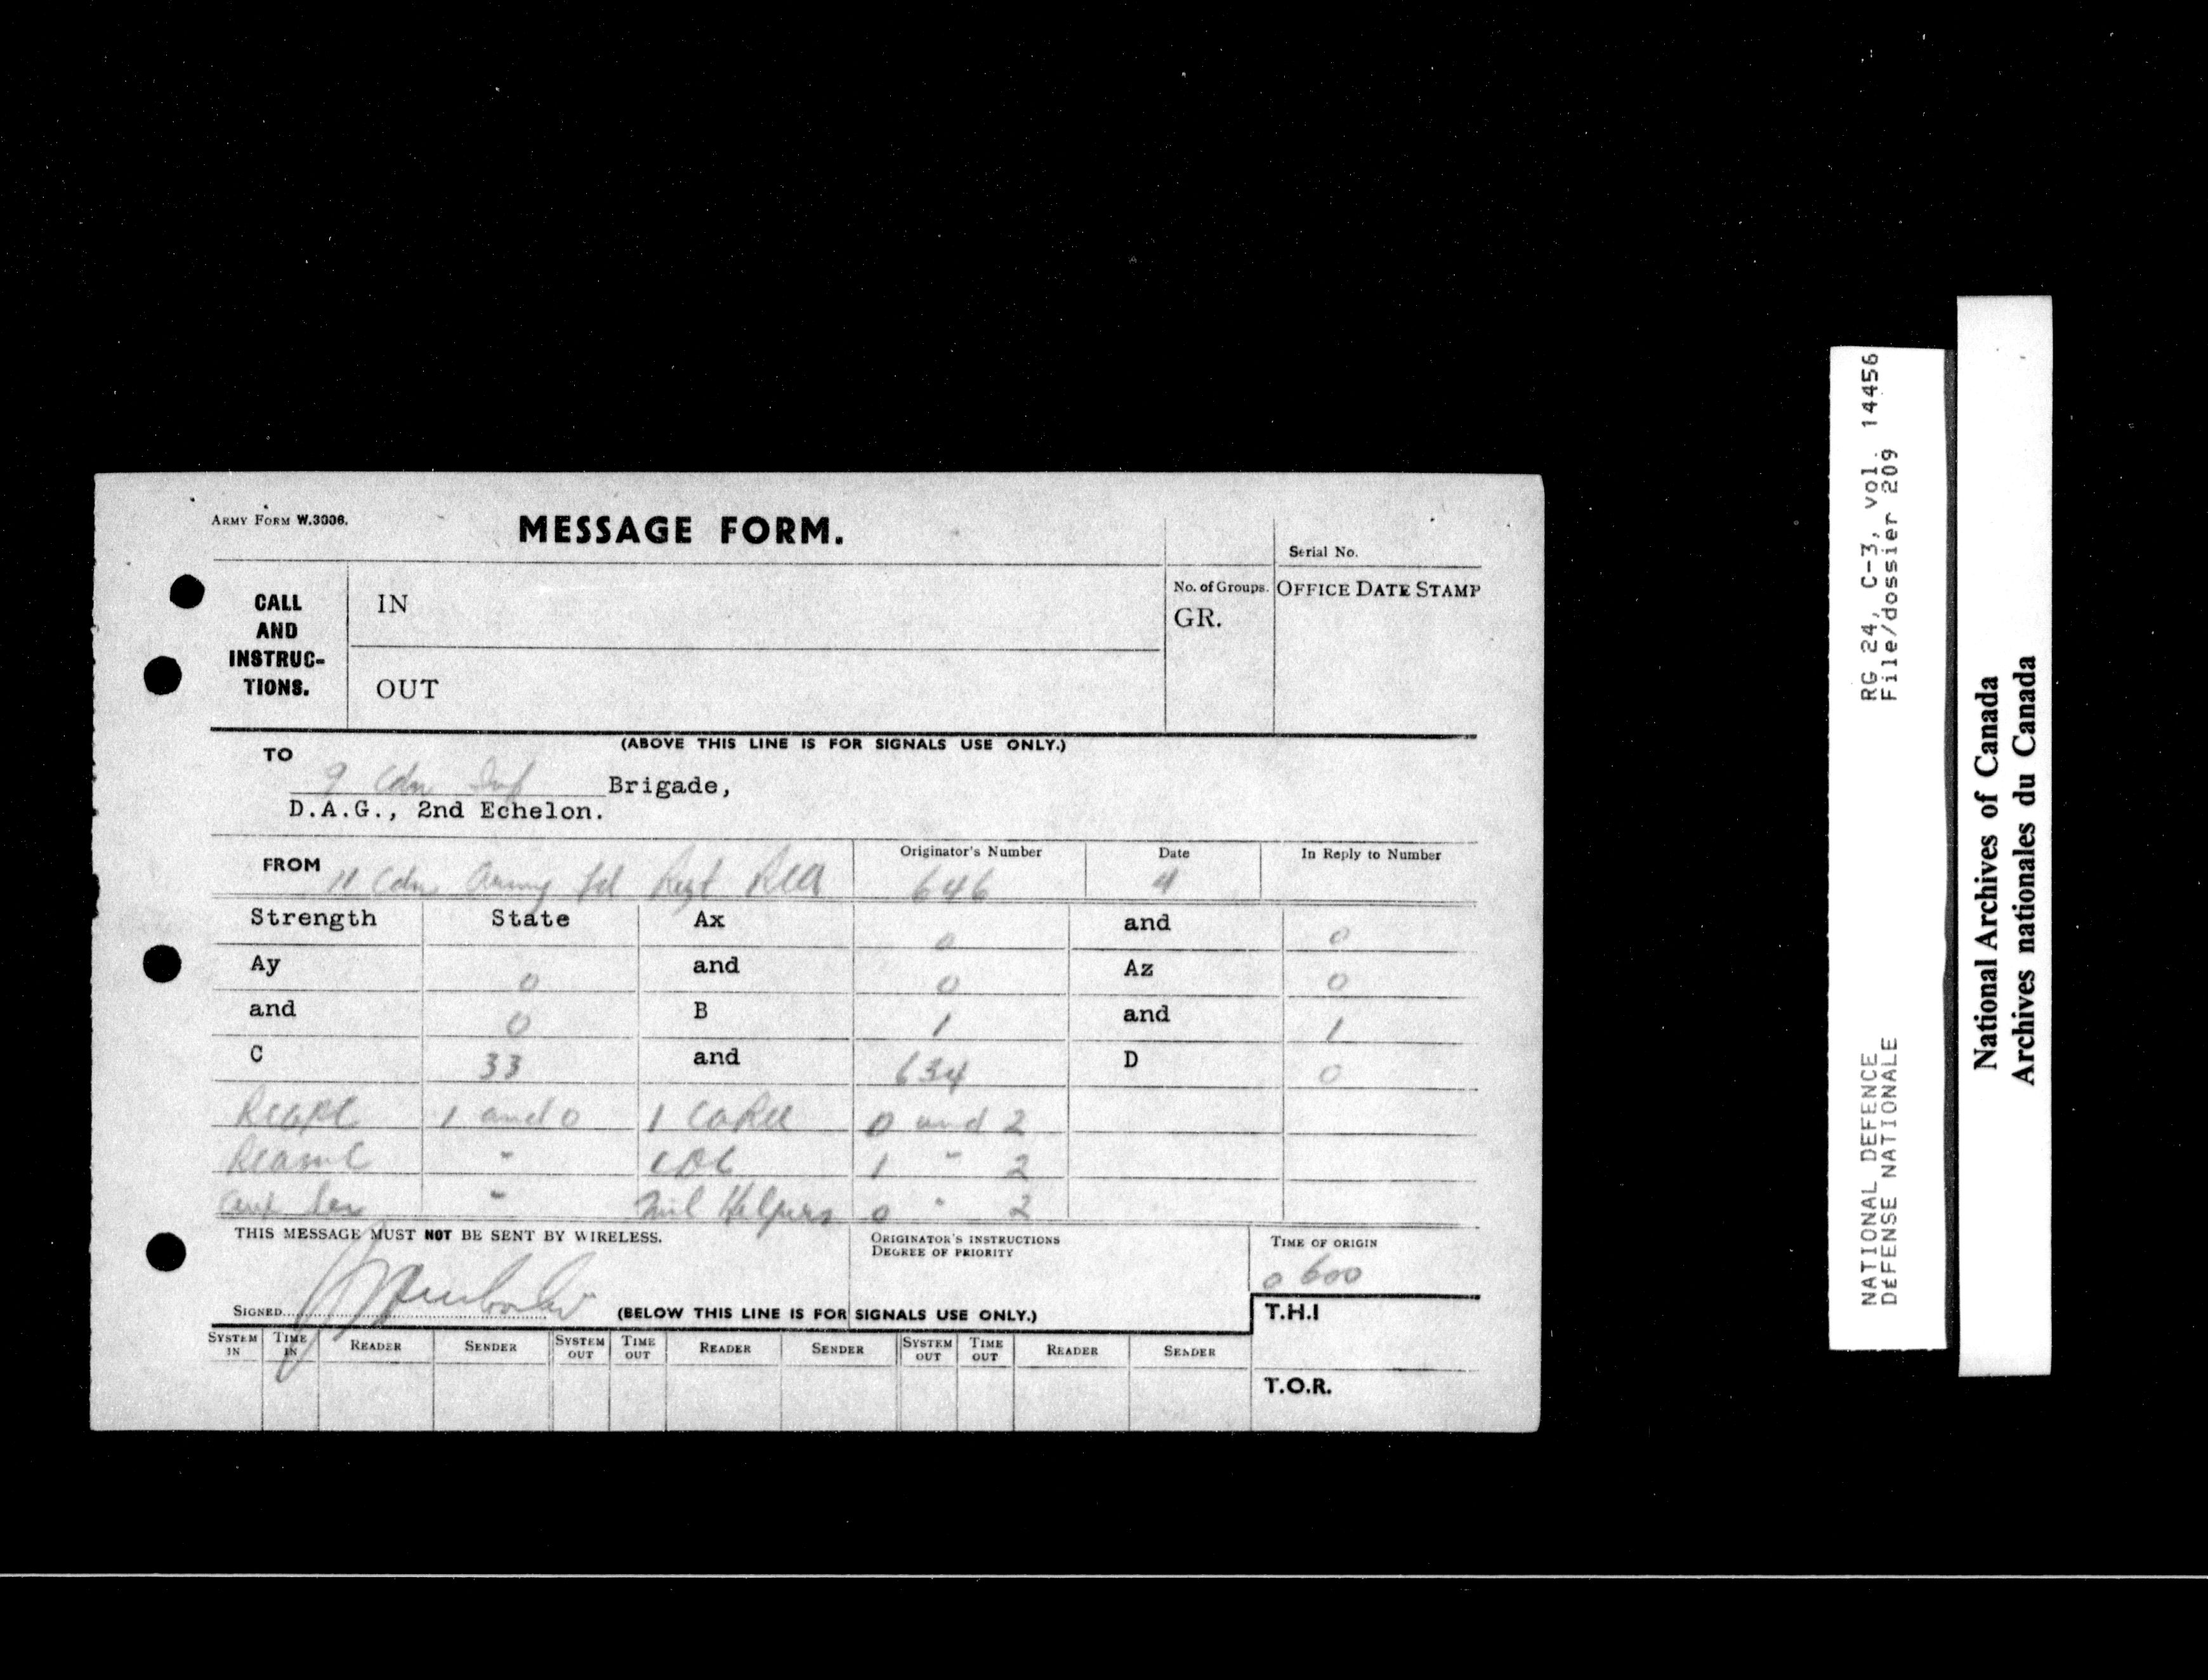 ARMY FORM W.3006.
MESSAGE FORM.
Serial No.
CALL AND INSTRUC- TIONS.
IN
No. of Groups.
GR.
OFFICE DATE STAMP
OUT
(ABOVE THIS LINE IS FOR SIGNALS USE ONLY.)
TO
9 Cdn Inf Brigade,
D.A.G., 2nd Echelon.
FROM 11 Cdn Army Fd Regt RCA
Originator's Number 646
Date 4
In Reply to Number
Strength State Ax 0 and 0
Ay 0 and 0 Az 0
and 0 B 1 and 1
C 33 and 634 D 0
1 and 0 1 0 and 2
" CDC 1 " 2
" Mil Helpers 0 " 2
THIS MESSAGE MUST NOT BE SENT BY WIRELESS.
ORIGINATOR'S INSTRUCTIONS
DEGREE OF PRIORITY
TIME OF ORIGIN
0600
SIGNED
(BELOW THIS LINE IS FOR SIGNALS USE ONLY.)
T.H.I
SYSTEM IN TIME IN READER SENDER SYSTEM OUT TIME OUT READER SENDER SYSTEM OUT TIME OUT READER SENDER
T.O.R.
RG 24, C-3, vol. 14456
File/dossier 209
NATIONAL DEFENCE
DÉFENSE NATIONALE
National Archives of Canada
Archives nationales du Canada